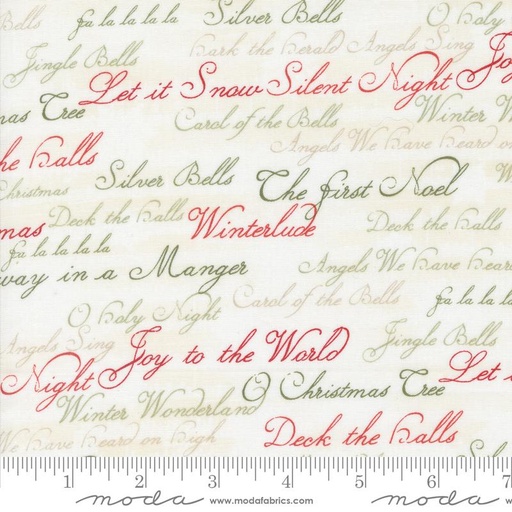 Bells fa la la la la Silver Bells O Holy
Jingle Bells Hark the Herald Angels Sing Joy
Let it Snow Silent Night
mas Tree Carol of the Bells Winter W
Angels We Have Heard on
he Halls
Christmas Silver Bells The First Noel W
mas Deck the Halls Winterlude Deck the Halls
fa la la la la
way in a Manger Angels We Have Heard
O Holy Night Carol of the Bells fa la la la
Angels Sing Joy to the World Jingle Bells
Night O Christmas Tree Let i
Winter Wonderland
We Have Heard on High Deck the Halls
1 2 3 4 5 6 7
moda www.modafabrics.com moda